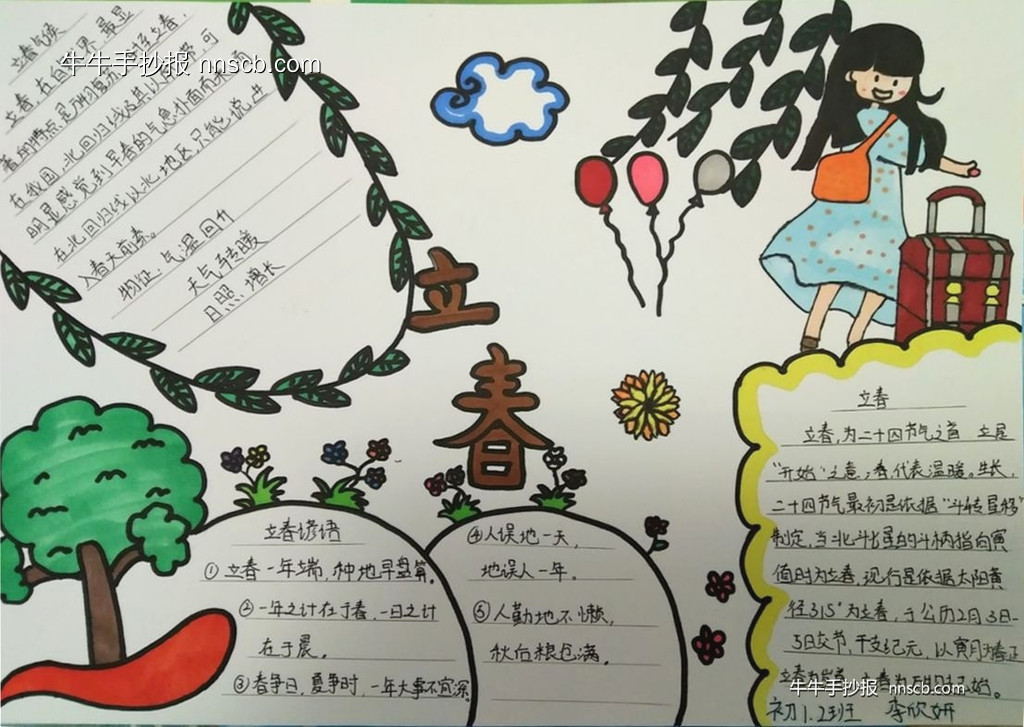 立春气候
立春,在自然界,最显
著的特点是万物复苏
在我国,北回归线及其以南
明显感觉到早春的气息
在北回归线以北地区,只能说进
入春天前奏。
物征:气温回升
天气转暖
日照增长
牛牛手抄报 nnscb.com
立
春
立春谚语
①立春一年端,种地早盘算。
②一年之计在于春,一日之计
在于晨。
③春争日,夏争时,一年大事不宜深。
④人误地一天,
地误人一年。
⑤人勤地不懒,
秋后粮仓满。
立春
立春,为二十四节气之首 立是
“开始”之意;春,代表温暖、生长,
二十四节气最初是依据“斗转星移”
制定,当北斗七星的斗柄指向寅
值时为立春,现行是依据太阳黄
径315°为立春,于公历2月3日-
5日交节,干支纪元,以寅月为春正
牛牛手抄报 nnscb.com
初1.2班 李欣妍